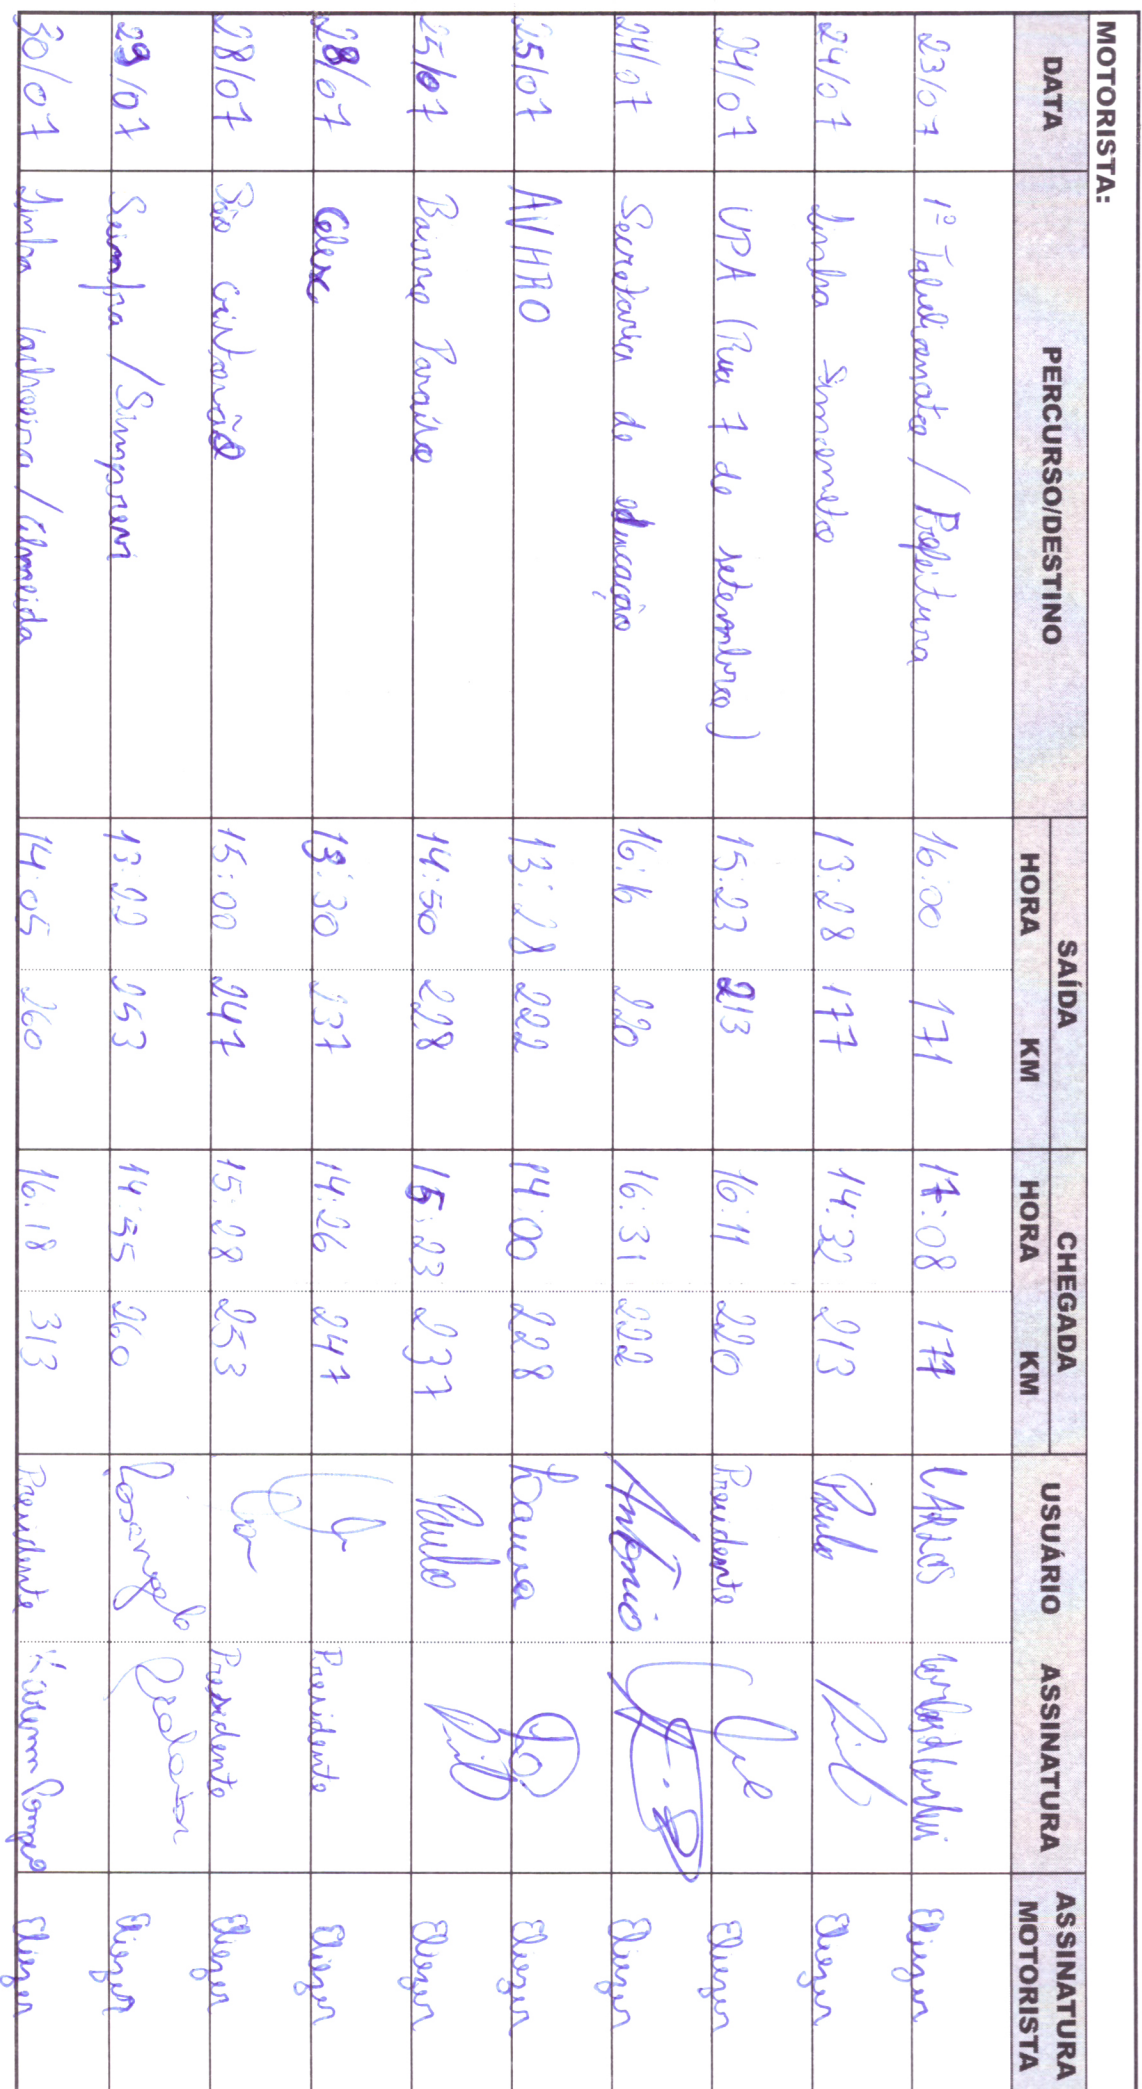 MOTORISTA:
DATA PERCURSO/DESTINO SAÍDA CHEGADA USUÁRIO ASSINATURA ASSINATURA MOTORISTA
HORA KM HORA KM
23/07 1º Tabelionato / Prefeitura 16:00 171 17:08 177 CARLOS Eliezer
24/07 Linha 13:28 177 14:32 213 Paulo Eliezer
24/07 UPA (Rua 7 de setembro) 15:23 213 16:11 220 Presidente Eliezer
24/07 Secretaria de educação 16:16 220 16:31 222 Antônio Eliezer
25/07 AVHRO 13:28 222 14:00 228 Eliezer
25/07 Bairro Paraíso 14:50 228 15:23 237 Paulo Eliezer
28/07 13:30 237 14:26 247 Presidente Eliezer
28/07 São Cristovão 15:00 247 15:28 253 Presidente Eliezer
29/07 Seimfra / Simprevi 13:22 253 14:35 260 Rosangela Eliezer
30/07 Linha cachoeira / Almeida 14:05 260 16:18 313 Presidente Eliezer